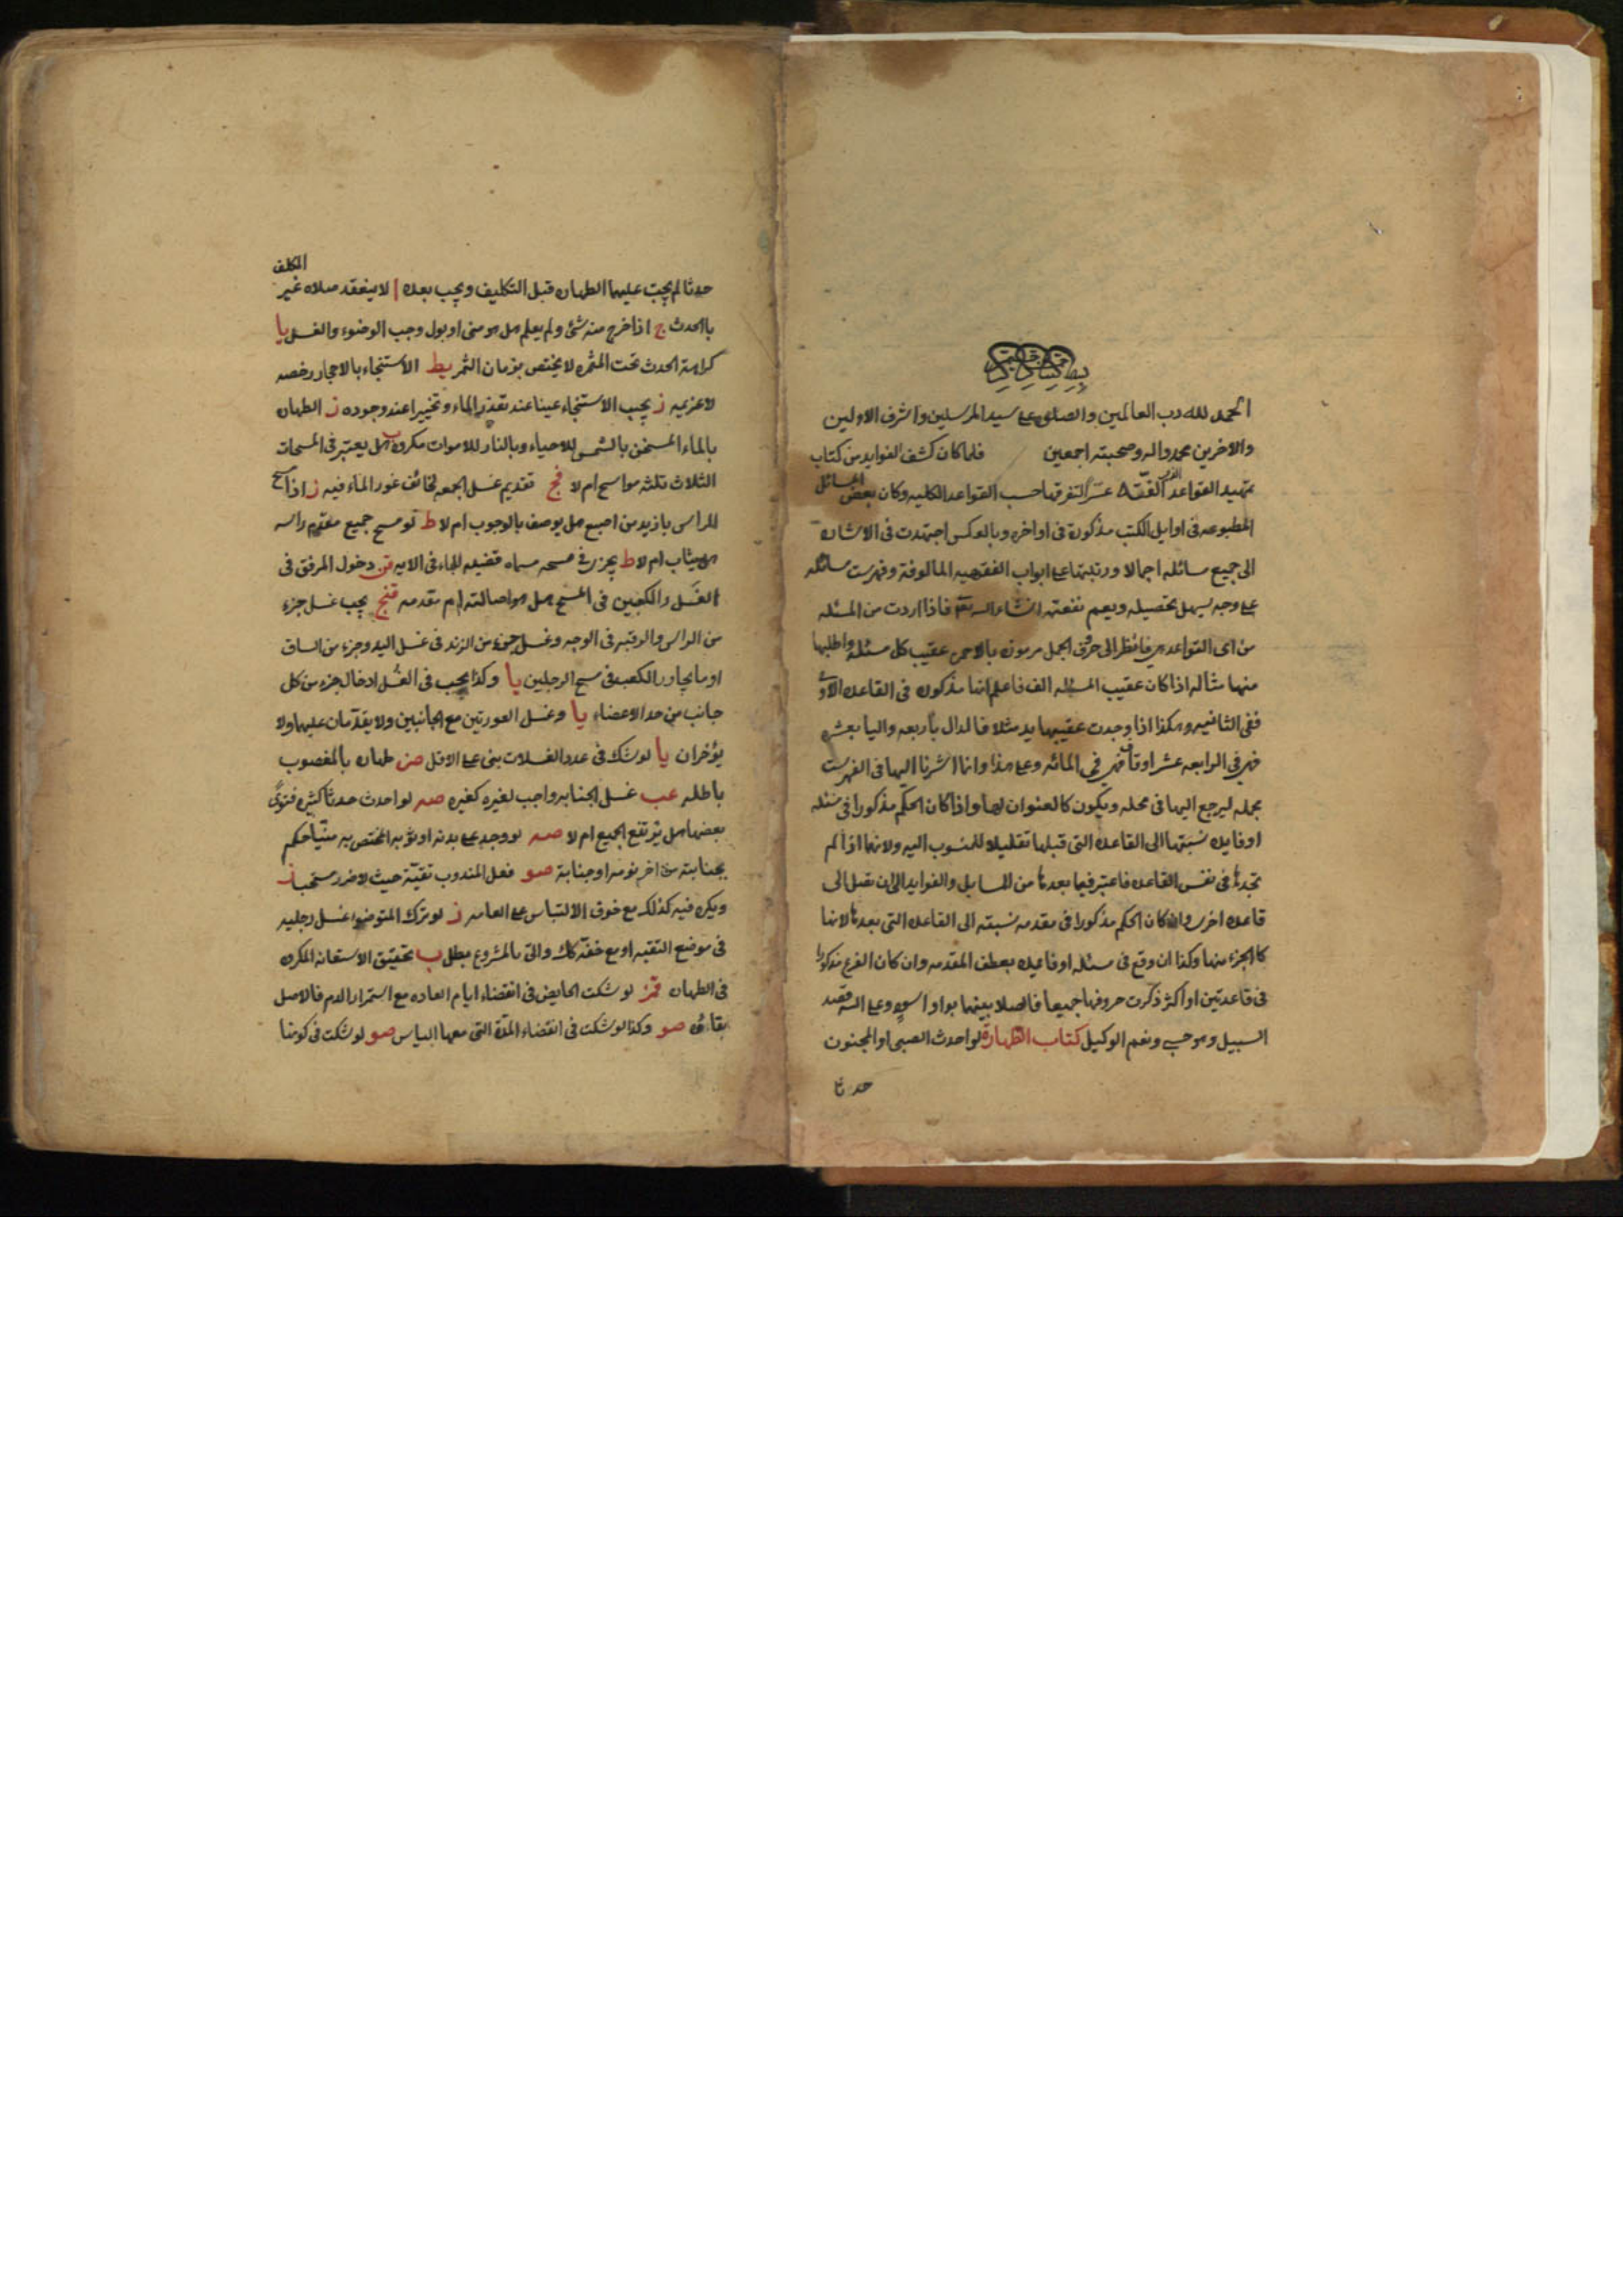 بسم الله الرحمن الرحيم
الحمد لله رب العالمين والصلوه على سيد المرسلين واشرف الاولين
والاخرين محمد واله وصحبته اجمعين فلما كان كشف الفوايد من كتاب
تمهيد القواعد لتفرقها حسب القواعد الكليه وكان بعض المسائل
المطبوعه فى اوايل الكتب مذكورة فى اواخره وبالعكس اجتهدت فى الاشارة
الى جميع مسائله اجمالا ورتبتها على ابواب الفقهيه المالوفة وفهرست مسائله
على وجه يسهل تحصيله ويعم نفعته انشاء الله تعه فاذا اردت من المسئله
من اى القواعد هى فانظر الى حروف الجمل مرموزه بالاحمر عقيب كل مسئله واطلبها
منها مثاله اذا كان عقيب المسئله الف فاعلم انها مذكوره فى القاعده الاولى
ففى الثانيه وهكذا اذا وجدت عقيبها يد مثلا فالدال بأربعه واليا بعشره
فهى فى الرابعه عشر او ق فهى فى المائه وعلى هذا وانما اشرنا اليها فى الفهرست
بجمله ليرجع اليها فى محله ويكون كالعنوان لها واذا كان الحكم مذكورا فى مسئله
او فايده نسبتها الى القاعده التى قبلها تقليلا للمنسوب اليه ولانها اذا لم
تجدها فى نفس القاعده فاعتبر فيما بعدها من المسايل والفوايد الى ان تصل الى
قاعده اخرى وان كان الحكم مذكورا فى مقدمه نسبته الى القاعده التى بعدها لانها
كالجزء منها وكذا ان وقع فى مسئله او فايده بعطف المقدمه وان كان الفرع مذكورا
فى قاعدتين او اكثر ذكرت حروفها جميعا فاصلا بينهما بواو اسود وعلى الله قصد
السبيل وهو حسبى ونعم الوكيل كتاب الطهارة لو احدث الصبى او المجنون
حدثا
المكلف
حدثا لم يجب عليهما الطهاره قبل التكليف ويجب بعده ا لا ينعقد صلاه غير
بالحدث ج اذا خرج منه شئ ولم يعلم هل هو منى او بول وجب الوضوء والغسل يا
كراهة الحدث تحت المثمره لا يختص بزمان الثمر يط الاستنجاء بالاحجار رخصه
لا عزيمه ز يجب الاستنجاء عينا عند تعذر الماء وتخييرا عند وجوده ز الطهاره
بالماء المسخن بالشمس للاحياء وبالنار للاموات مكروه ب هل يعتبر فى المسحات
الثلاث ثلثه مواسح ام لا فج تقديم غسل الجمعه لخائف عوز الماء فيه ز اذا مسح
الراس بازيد من اصبع هل يوصف بالوجوب ام لا ط لو مسح جميع مقدم راسه
هل يثاب ام لا ط يجزى فى مسحه مسماه قضيه للباء فى الايه قن دخول المرفق فى
الغسل والكعبين فى المسح هل هو اصالته ام مقدمه قنج يجب غسل جزء
من الراس والرقبه فى الوجه وغسل جزء من الزند فى غسل اليد وجزء من الساق
او ما يجاور الكعب فى مسح الرجلين يا وكذا يجب فى الغسل ادخال جزء من كل
جانب من حد الاعضاء يا وغسل العورتين مع الجانبين ولا يقدمان عليهما ولا
يؤخران يا لو شك فى عدد الغسلات بنى على الاقل صز طهاره بالمغصوب
باطله عب غسل الجنابه واجب لغيره كغيره صه لو احدث حدثا كثيره فنوى
بعضها هل يرتفع الجميع ام لا صه لو وجد على بدنه او ثوبه المختص به منيا حكم
بجنابته من اخر نومه او جنابة صو فعل المندوب تقيّة حيث لا ضرر مستحبا ز
ويكره فيه كذلك مع خوف الالتباس على العامه ز لو ترك المتوضى غسل رجليه
فى موضع التقيه او مسح خفه كك واتى بالمشروع بطل ب تحقيق الاستعانه المكرهه
فى الطهاره قمز لو شكت الحايض فى انقضاء ايام العاده مع استمرار الدم فالاصل
بقاؤه صو وكذا لو شكت فى انقضاء المدّة التى معها الياس صو لو شكت فى كونها